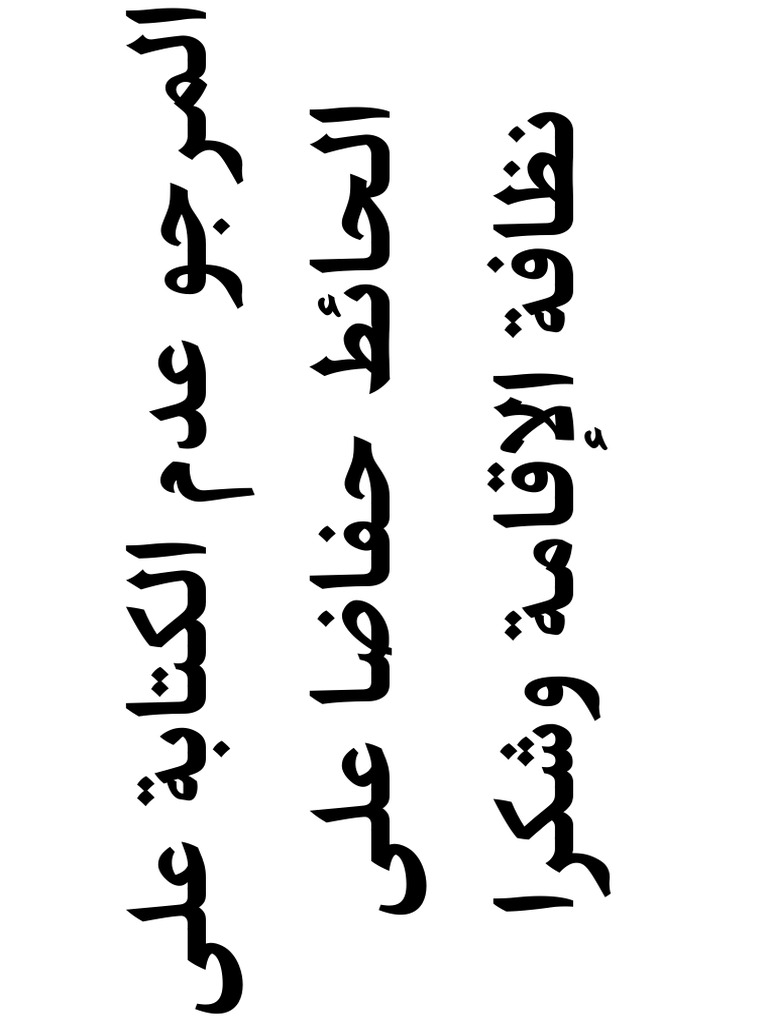 المرجو عدم الكتابة على
الحائط حفاضا على
نظافة الإقامة وشكرا